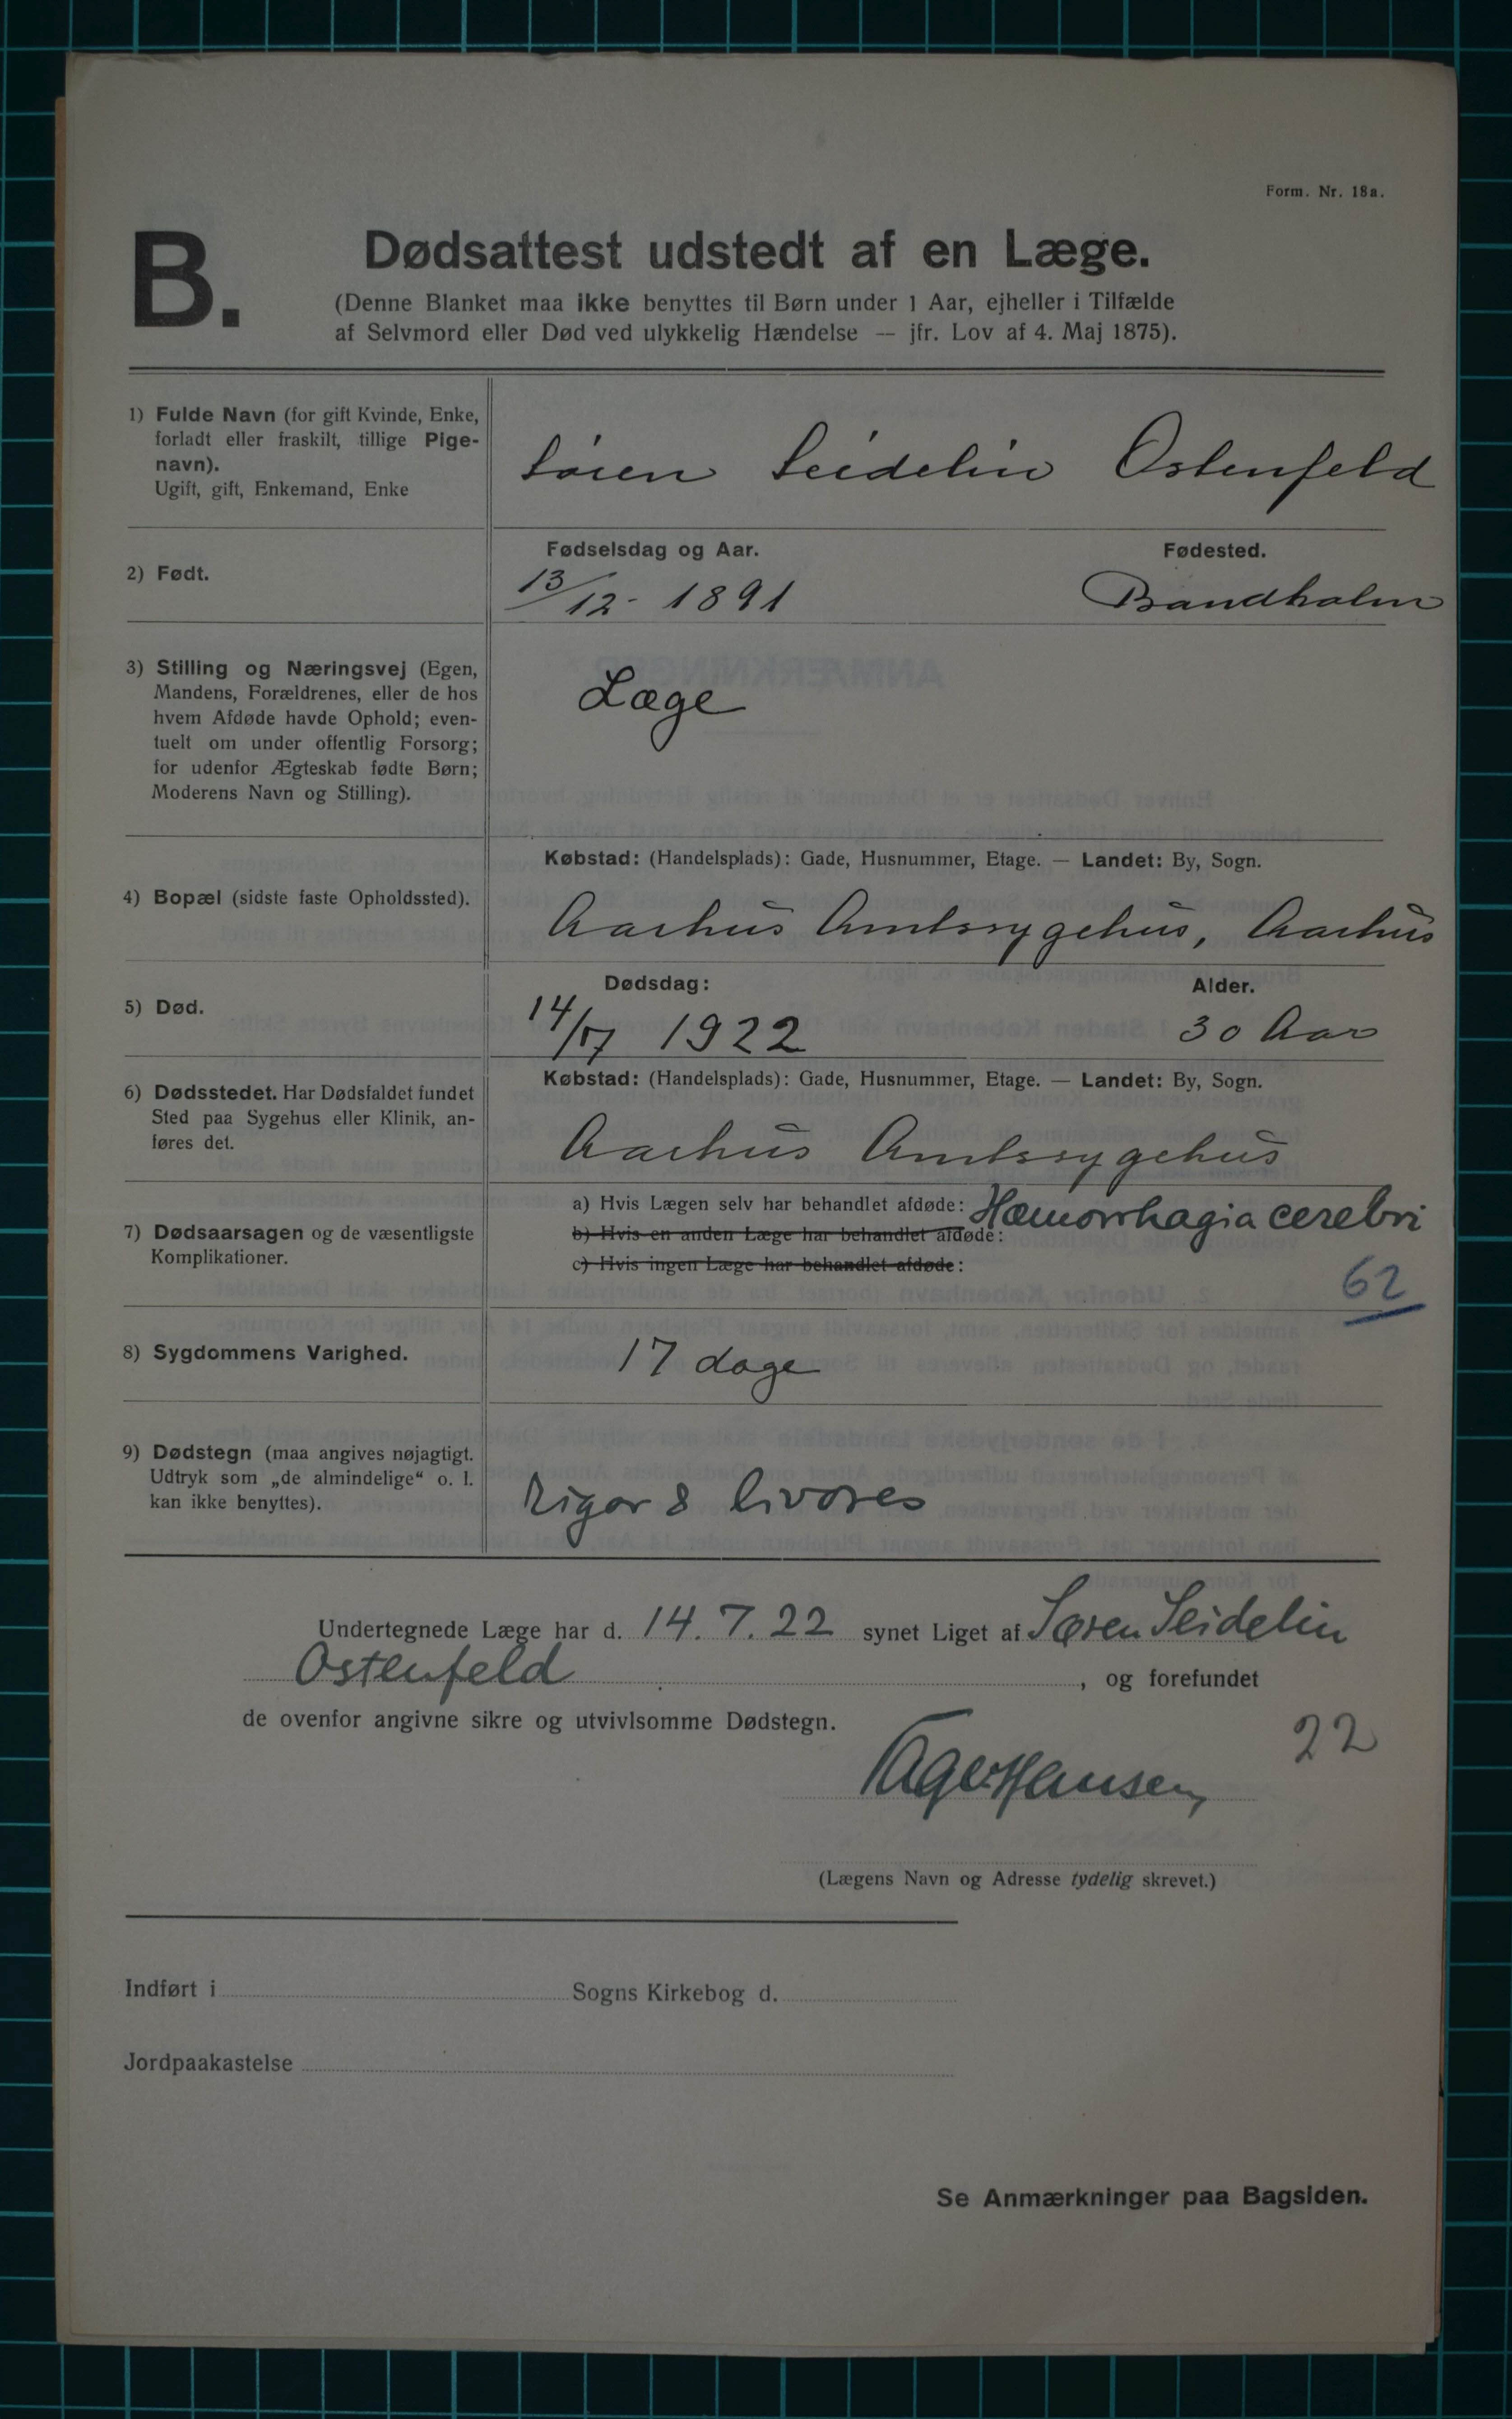 Form. Nr. 18a.
B.
Dødsattest udstedt af en Læge.
(Denne Blanket maa ikke benyttes til Børn under 1 Aar, ejheller i Tilfælde
af Selvmord eller Død ved ulykkelig Hændelse — jfr. Lov af 4. Maj 1875).
1) Fulde Navn (for gift Kvinde, Enke,
forladt eller fraskilt, tillige Pige-
navn).
Ugift, gift, Enkemand, Enke
Søren Seidelin Ostenfeld
2) Født.
Fødselsdag og Aar.
Fødested.
13/12- 1891
Bandholm
3) Stilling og Næringsvej (Egen,
Mandens, Forældrenes, eller de hos
hvem Afdøde havde Ophold; even-
tuelt om under offentlig Forsorg;
for udenfor Ægteskab fødte Børn;
Moderens Navn og Stilling).
Læge
Købstad: (Handelsplads): Gade, Husnummer, Etage. — Landet: By, Sogn.
4) Bopæl (sidste faste Opholdssted).
Aarhus Amtssygehus, Aarhus
5) Død.
Dødsdag:
Alder.
14/7 1922
30 Aar
6) Dødsstedet. Har Dødsfaldet fundet
Sted paa Sygehus eller Klinik, an-
føres det.
Købstad: (Handelsplads): Gade, Husnummer, Etage. — Landet: By, Sogn.
Aarhus Amtssygehus
7) Dødsaarsagen og de væsentligste
Komplikationer.
a) Hvis Lægen selv har behandlet afdøde: Hæmorrhagia cerebri
b) Hvis en anden Læge har behandlet afdøde:
c) Hvis ingen Læge har behandlet afdøde:
62
8) Sygdommens Varighed.
17 dage
9) Dødstegn (maa angives nøjagtigt.
Udtryk som „de almindelige“ o. l.
kan ikke benyttes).
Rigor & livores
Undertegnede Læge har d. 14. 7. 22 synet Liget af Søren Seidelin
Ostenfeld, og forefundet
de ovenfor angivne sikre og utvivlsomme Dødstegn.
22
Hansen
(Lægens Navn og Adresse tydelig skrevet.)
Indført i Sogns Kirkebog d.
Jordpaakastelse
Se Anmærkninger paa Bagsiden.